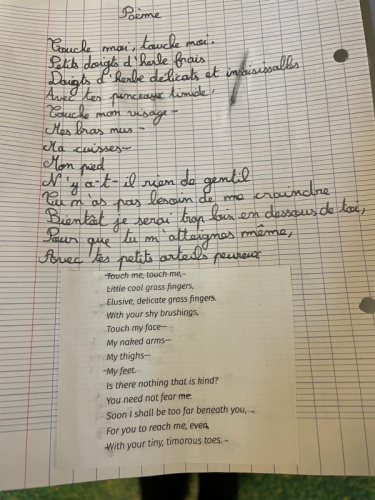 Poème
Touche moi, touche moi.
Petits doigts d'herbe frais
Doigts d'herbe délicats et insaisissables
Avec tes pinceaux timide,
Touche mon visage-
Mes bras nus-
Ma cuisses-
Mon pied
N'y a-t-il rien de gentil
Tu m'as pas besoin de me craindre
Bientôt je serai trop loin en dessous de toi,
Pour que tu m'atteignes même,
Avec tes petits orteils peureux
Touch me, touch me,
Little cool grass fingers,
Elusive, delicate grass fingers.
With your shy brushings,
Touch my face—
My naked arms—
My thighs—
My feet.
Is there nothing that is kind?
You need not fear me.
Soon I shall be too far beneath you,
For you to reach me, even,
With your tiny, timorous toes.